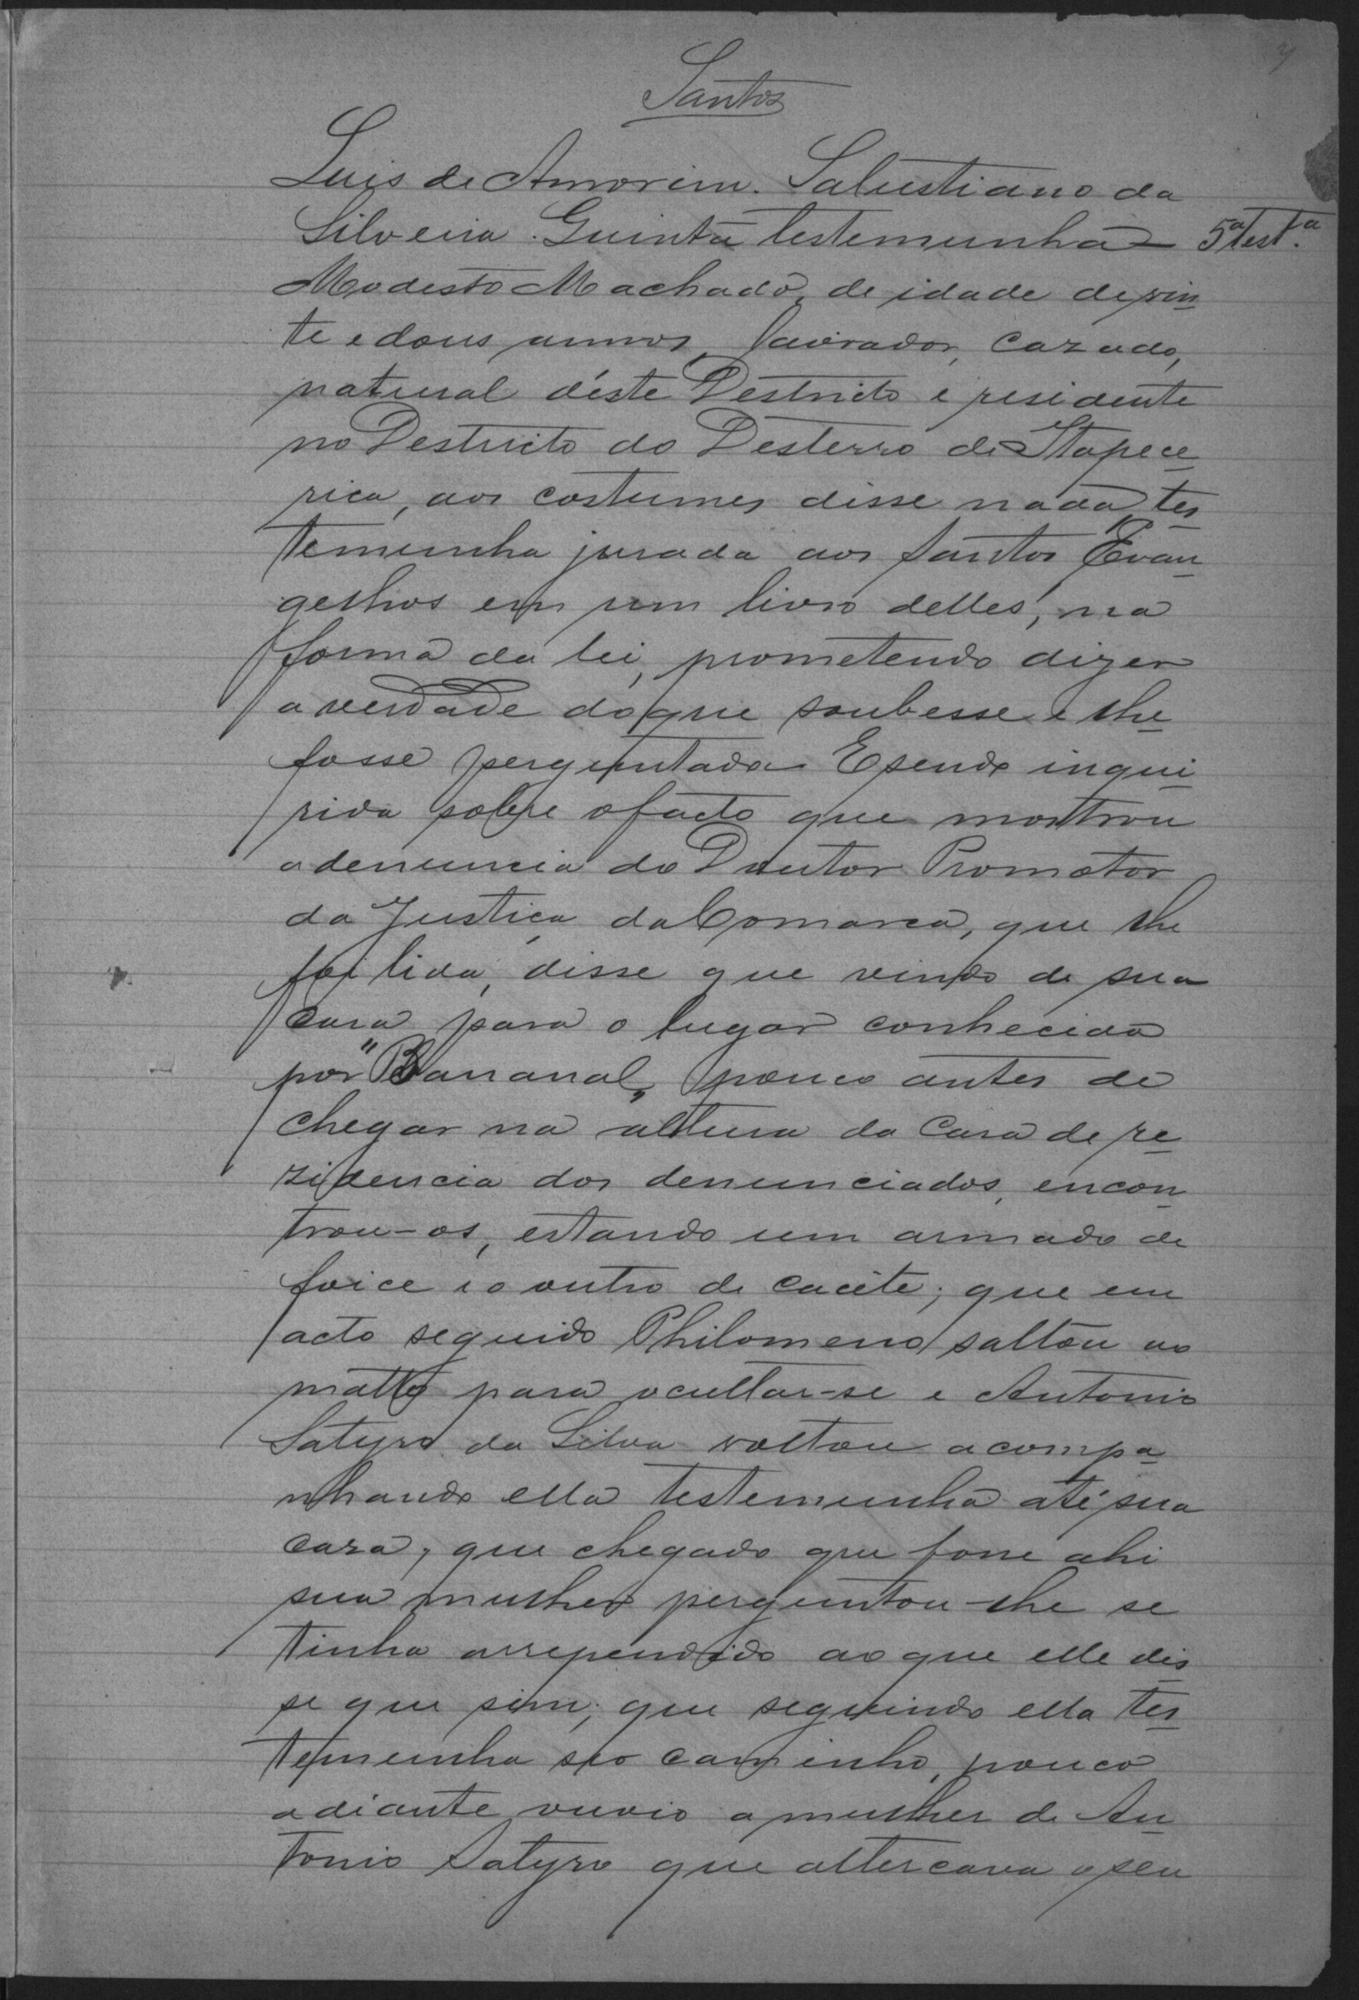 Santos
Luis de Amorim. Salustiano da
Silveira. Quinta testemunha 5ª testª
Modesto Machado, de idade de vin
te e dous annos, lavrador, cazado,
natural d'éste Destricto e residente
no Destricto do Desterro de Itapece
rica, aos costumes disse nada tes
temunha jurada aos Santos Evan
gelhos em um livro delles, na
forma da lei, prometendo dizer
a verdade do que soubesse e lhe
fosse perguntada. E sendo inqui
rida sobre o facto que mostrou
a denuncia do Doutor Promotor
da Justiça da Comarca, que lhe
foi lida, disse que vindo de sua
casa para o lugar conhecido
por "Bananal" pouco antes de
chegar na altura da casa de re
zidencia dos denunciados, encon
trou-os, estando um armado de
foice e o outro de cacête; que em
acto seguido Philomeno saltou ao
matto para ocultar-se e Antonio
Satyro da Silva voltou acompa
nhando ella testemunha até sua
caza; que chegado que fosse ahi
sua mulher perguntou-lhe se
tinha arrependido ao que elle dis
se que sim; que seguindo ella tes
temunha seo caminho, pouco
adiante ouvio a mulher de An
tonio Satyro que altercava o seu